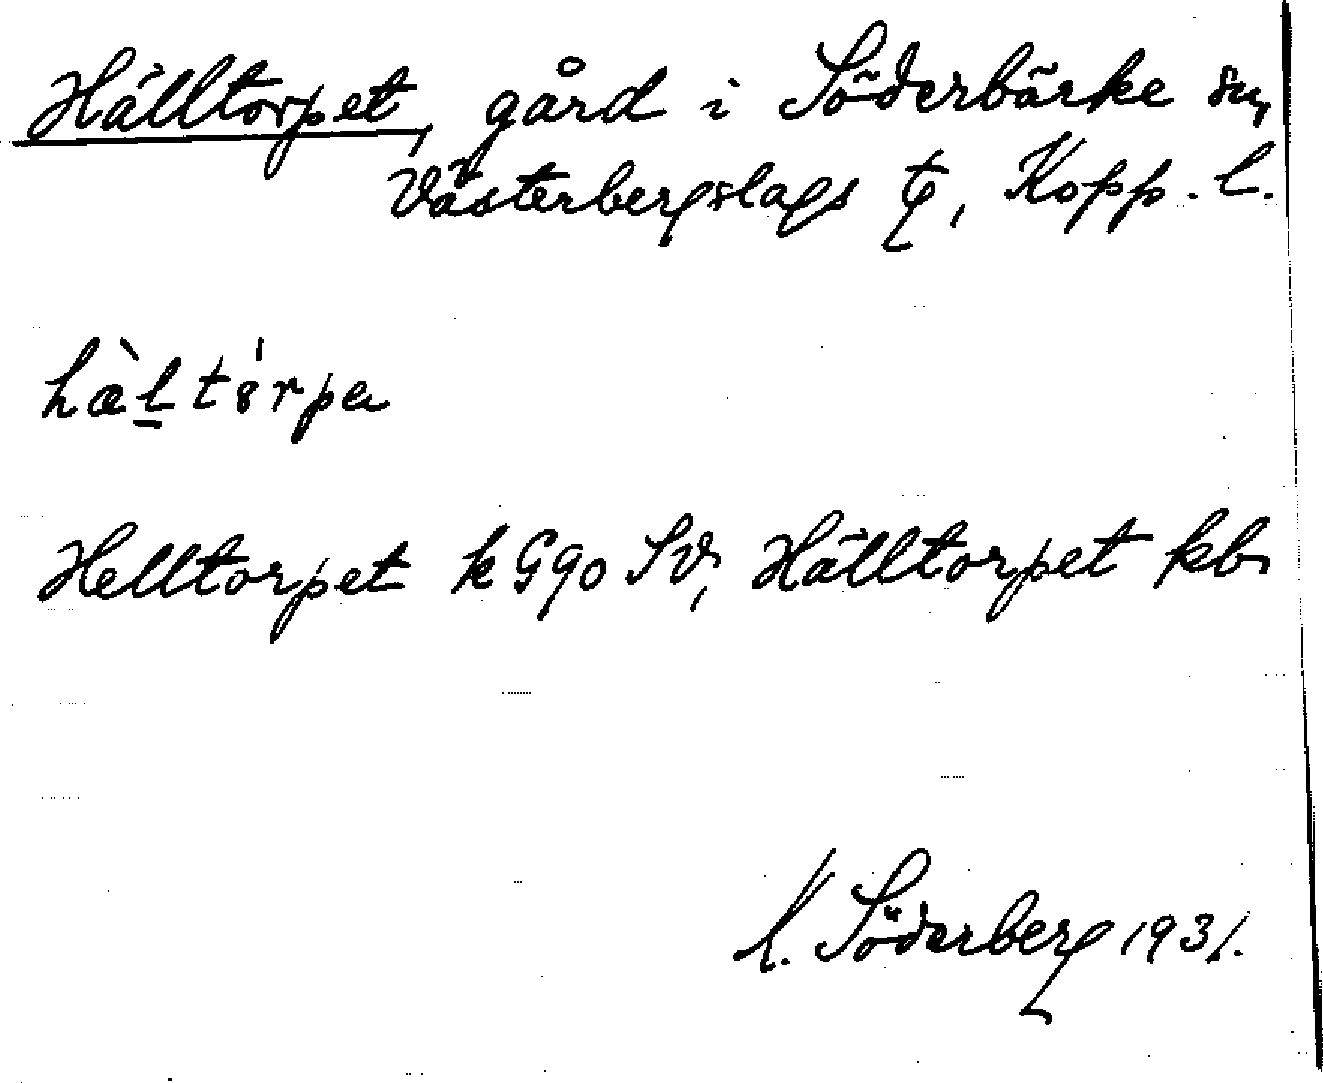 Hälltorpet, gård i Söderbärke sn,
Västerbergslags tg, Kopp. l.
hæ̀ltȯrpa
Helltorpet k GQo SV, Hälltorpet kb.
K. Söderberg 1931.